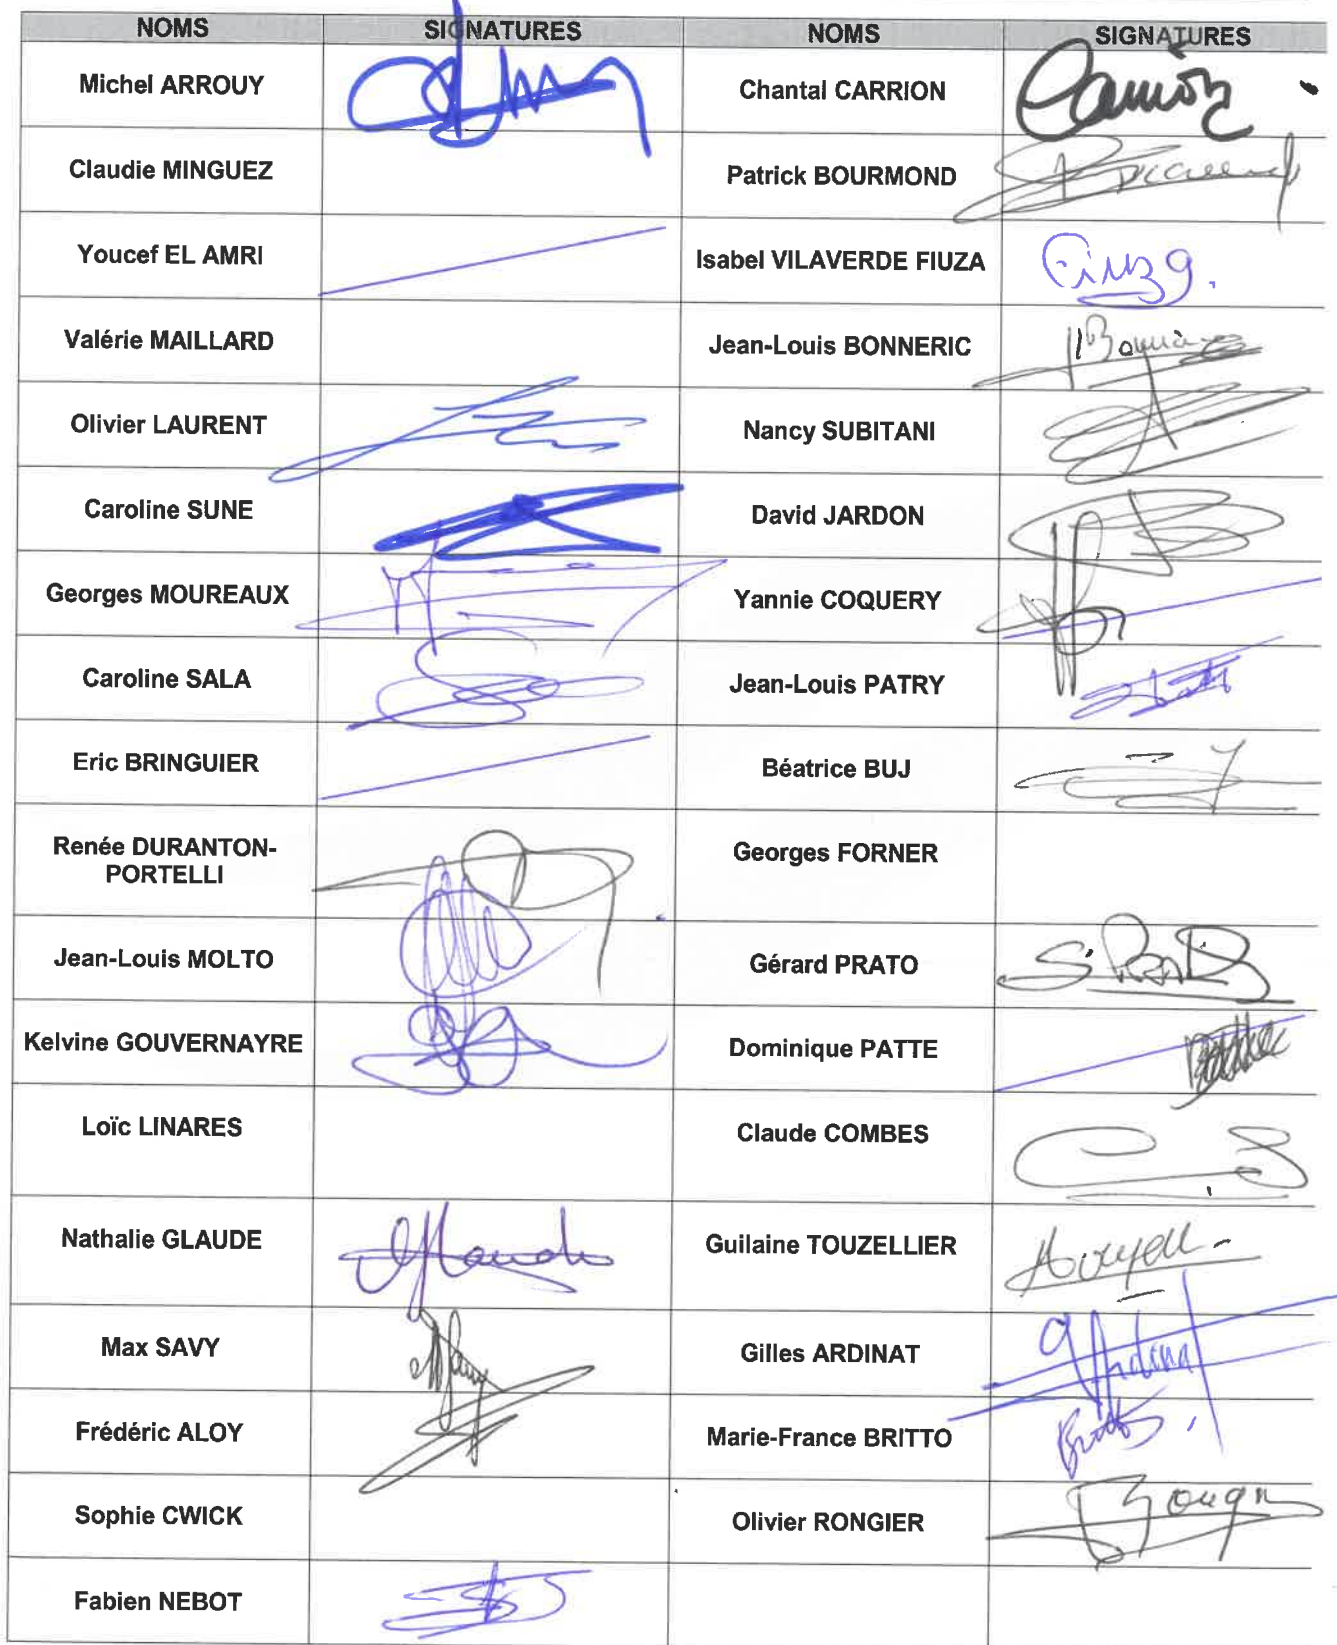 NOMS SIGNATURES NOMS SIGNATURES
Michel ARROUY Chantal CARRION
Claudie MINGUEZ Patrick BOURMOND
Youcef EL AMRI Isabel VILAVERDE FIUZA
Valérie MAILLARD Jean-Louis BONNERIC
Olivier LAURENT Nancy SUBITANI
Caroline SUNE David JARDON
Georges MOUREAUX Yannie COQUERY
Caroline SALA Jean-Louis PATRY
Eric BRINGUIER Béatrice BUJ
Renée DURANTON-
PORTELLI
Georges FORNER
Jean-Louis MOLTO Gérard PRATO
Kelvine GOUVERNAYRE Dominique PATTE
Loïc LINARES Claude COMBES
Nathalie GLAUDE Guilaine TOUZELLIER
Max SAVY Gilles ARDINAT
Frédéric ALOY Marie-France BRITTO
Sophie CWICK Olivier RONGIER
Fabien NEBOT